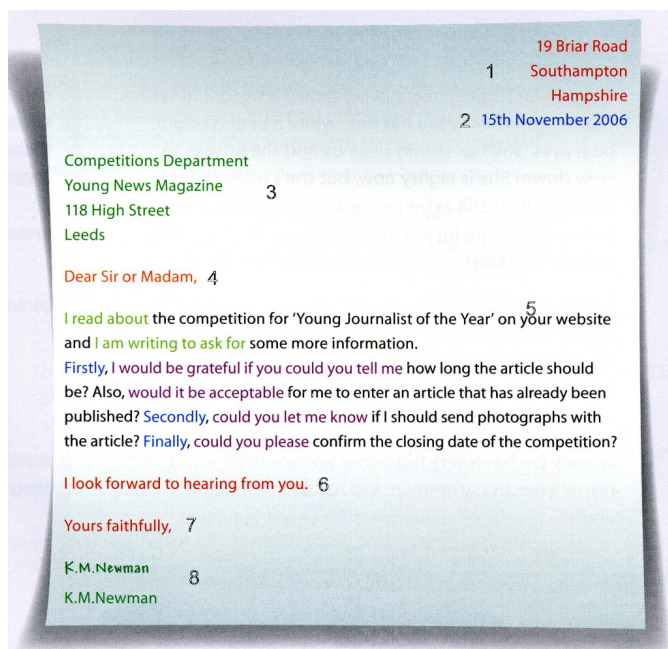 19 Briar Road
1 Southampton
Hampshire
2 15th November 2006
Competitions Department
Young News Magazine
3
118 High Street
Leeds
Dear Sir or Madam, 4
5
I read about the competition for 'Young Journalist of the Year' on your website
and I am writing to ask for some more information.
Firstly, I would be grateful if you could you tell me how long the article should
be? Also, would it be acceptable for me to enter an article that has already been
published? Secondly, could you let me know if I should send photographs with
the article? Finally, could you please confirm the closing date of the competition?
I look forward to hearing from you. 6
Yours faithfully, 7
K.M.Newman
8
K.M.Newman